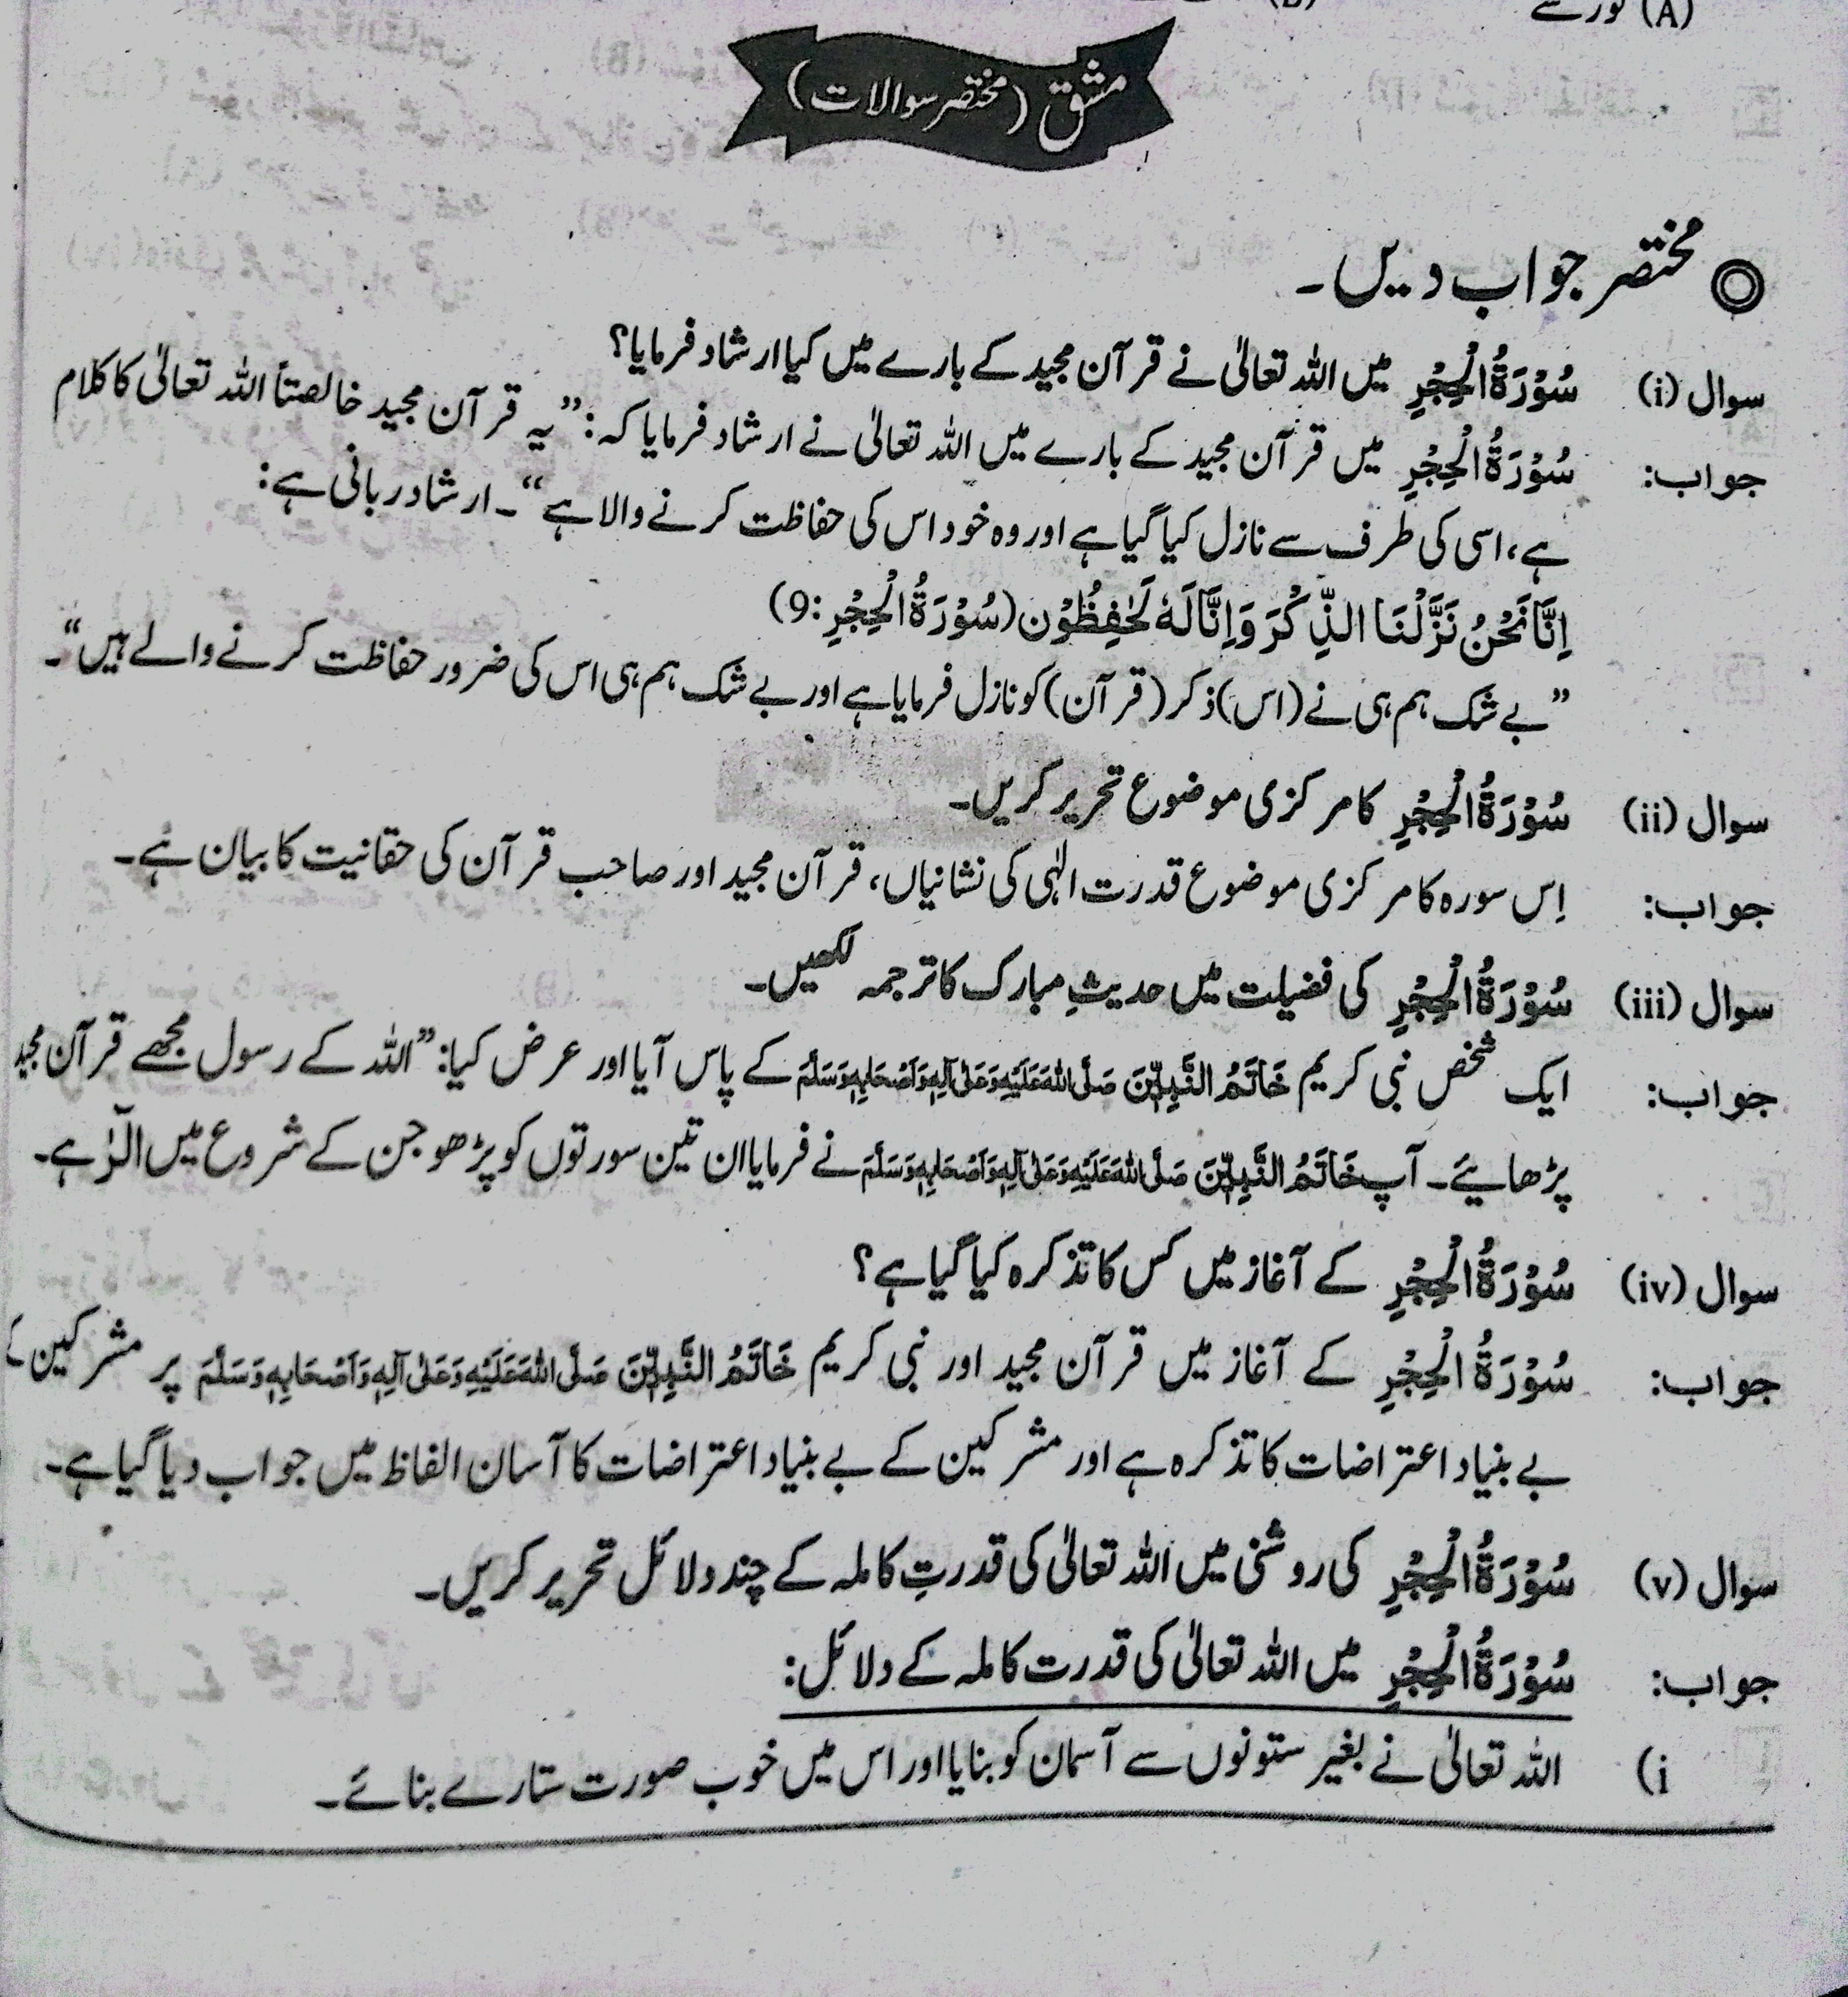 (A) نور سے
مشق (مختصر سوالات)
مختصر جواب دیں۔
سوال (i) سُوْرَۃُ الْحِجْرِ میں اللہ تعالیٰ نے قرآن مجید کے بارے میں کیا ارشاد فرمایا؟
جواب: سُوْرَۃُ الْحِجْرِ میں قرآن مجید کے بارے میں اللہ تعالیٰ نے ارشاد فرمایا کہ: ”یہ قرآن مجید خالصتاً اللہ تعالیٰ کا کلام
ہے، اسی کی طرف سے نازل کیا گیا ہے اور وہ خود اس کی حفاظت کرنے والا ہے“۔ ارشاد ربانی ہے:
اِنَّا نَحْنُ نَزَّلْنَا الذِّكْرَ وَاِنَّا لَهٗ لَحٰفِظُوْن (سُوْرَۃُ الْحِجْرِ: 9)
”بے شک ہم ہی نے (اس) ذکر (قرآن) کو نازل فرمایا ہے اور بے شک ہم ہی اس کی ضرور حفاظت کرنے والے ہیں“۔
سوال (ii) سُوْرَۃُ الْحِجْرِ کا مرکزی موضوع تحریر کریں۔
جواب: اِس سورہ کا مرکزی موضوع قدرت الٰہی کی نشانیاں، قرآن مجید اور صاحب قرآن کی حقانیت کا بیان ہے۔
سوال (iii) سُوْرَۃُ الْحِجْرِ کی فضیلت میں حدیثِ مبارک کا ترجمہ لکھیں۔
جواب: ایک شخص نبی کریم خَاتَمُ النَّبِیّٖنَ صَلَّی اللہُ عَلَیْہِ وَعَلٰی آلِہٖ وَاَصْحَابِہٖ وَسَلَّمَ کے پاس آیا اور عرض کیا: ”اللہ کے رسول مجھے قرآن مجید
پڑھایئے۔ آپ خَاتَمُ النَّبِیّٖنَ صَلَّی اللہُ عَلَیْہِ وَعَلٰی آلِہٖ وَاَصْحَابِہٖ وَسَلَّمَ نے فرمایا ان تین سورتوں کو پڑھو جن کے شروع میں الٓرٰ ہے۔
سوال (iv) سُوْرَۃُ الْحِجْرِ کے آغاز میں کس کا تذکرہ کیا گیا ہے؟
جواب: سُوْرَۃُ الْحِجْرِ کے آغاز میں قرآن مجید اور نبی کریم خَاتَمُ النَّبِیّٖنَ صَلَّی اللہُ عَلَیْہِ وَعَلٰی آلِہٖ وَاَصْحَابِہٖ وَسَلَّمَ پر مشرکین کے
بے بنیاد اعتراضات کا تذکرہ ہے اور مشرکین کے بے بنیاد اعتراضات کا آسان الفاظ میں جواب دیا گیا ہے۔
سوال (v) سُوْرَۃُ الْحِجْرِ کی روشنی میں اللہ تعالیٰ کی قدرتِ کاملہ کے چند دلائل تحریر کریں۔
جواب: سُوْرَۃُ الْحِجْرِ میں اللہ تعالیٰ کی قدرت کاملہ کے دلائل:
i) اللہ تعالیٰ نے بغیر ستونوں سے آسمان کو بنایا اور اس میں خوب صورت ستارے بنائے۔